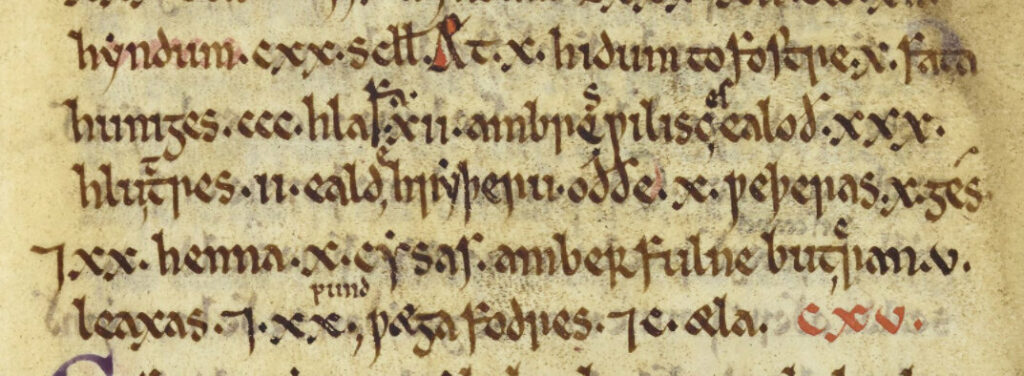 hyndum. cxx. scill. Æt. x. hidum to fostre. x. fata
huniges. ccc. hlafa. xii. ambręs ƿiliscęs ealoð. xxx.
hluttres. ii. ealde hryþeru. oððe. x. ƿeþeras. x. gés
⁊ xx. henna. x. cysas. amber fulne buteran. v.
leaxas. ⁊. xx. pund ƿæga fodres. ⁊ c. æla. cxv.